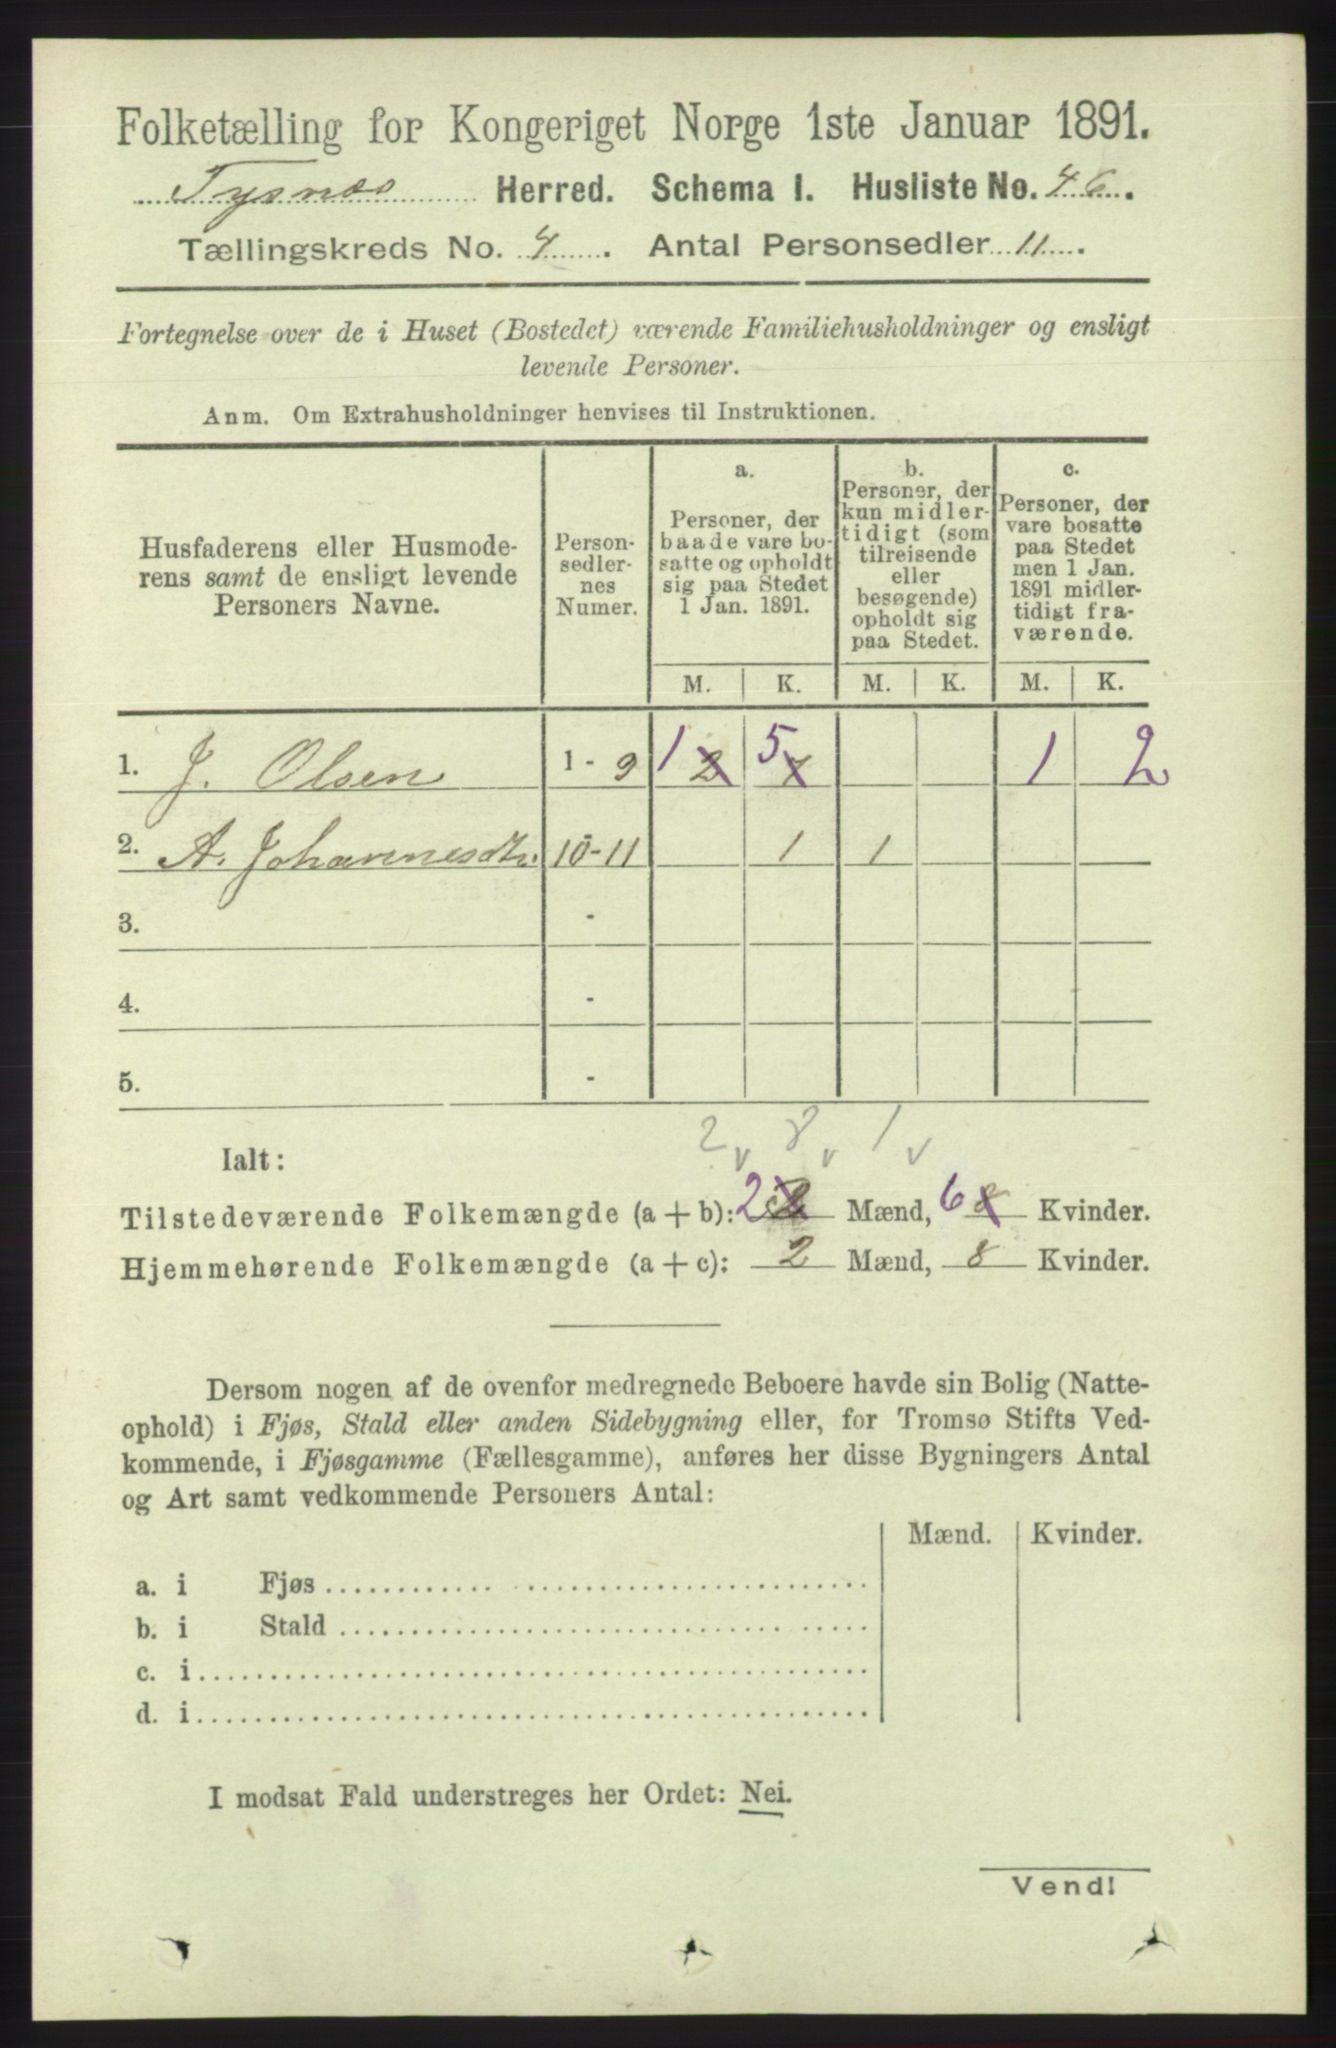 Folketælling for Kongeriget Norge 1ste Januar 1891.
Tysnæs Herred. Schema I. Husliste No. 46.
Tællingskreds No. 4. Antal Personsedler 11.
Fortegnelse over de i Huset (Bostedet) værende Familiehusholdninger og ensligt
levende Personer.
Anm. Om Extrahusholdninger henvises til Instruktionen.
Husfaderens eller Husmode-
rens samt de ensligt levende
Personers Navne.
Person-
sedler-
nes
Numer.
a.
Personer, der
baade vare bo-
satte og opholdt
sig paa Stedet
1 Jan. 1891.
b.
Personer, der
kun midler-
tidigt (som
tilreisende
eller
besøgende)
opholdt sig
paa Stedet.
c.
Personer, der
vare bosatte
paa Stedet
men 1 Jan.
1891 midler-
tidigt fra-
værende.
M. K. M. K. M. K.
1. J. Olsen 1 - 9 1 2 5 7 1 2
2. A. Johannesdtr. 10-11 1 1
3. -
4. -
5. -
2 8 1
Ialt:
Tilstedeværende Folkemængde (a + b): 2 Mænd, 6 8 Kvinder.
Hjemmehørende Folkemængde (a + c): 2 Mænd, 8 Kvinder.
Dersom nogen af de ovenfor medregnede Beboere havde sin Bolig (Natte-
ophold) i Fjøs, Stald eller anden Sidebygning eller, for Tromsø Stifts Ved-
kommende, i Fjøsgamme (Fællesgamme), anføres her disse Bygningers Antal
og Art samt vedkommende Personers Antal:
Mænd. Kvinder.
a. i Fjøs
b. i Stald
c. i
d. i
I modsat Fald understreges her Ordet: Nei.
Vend!